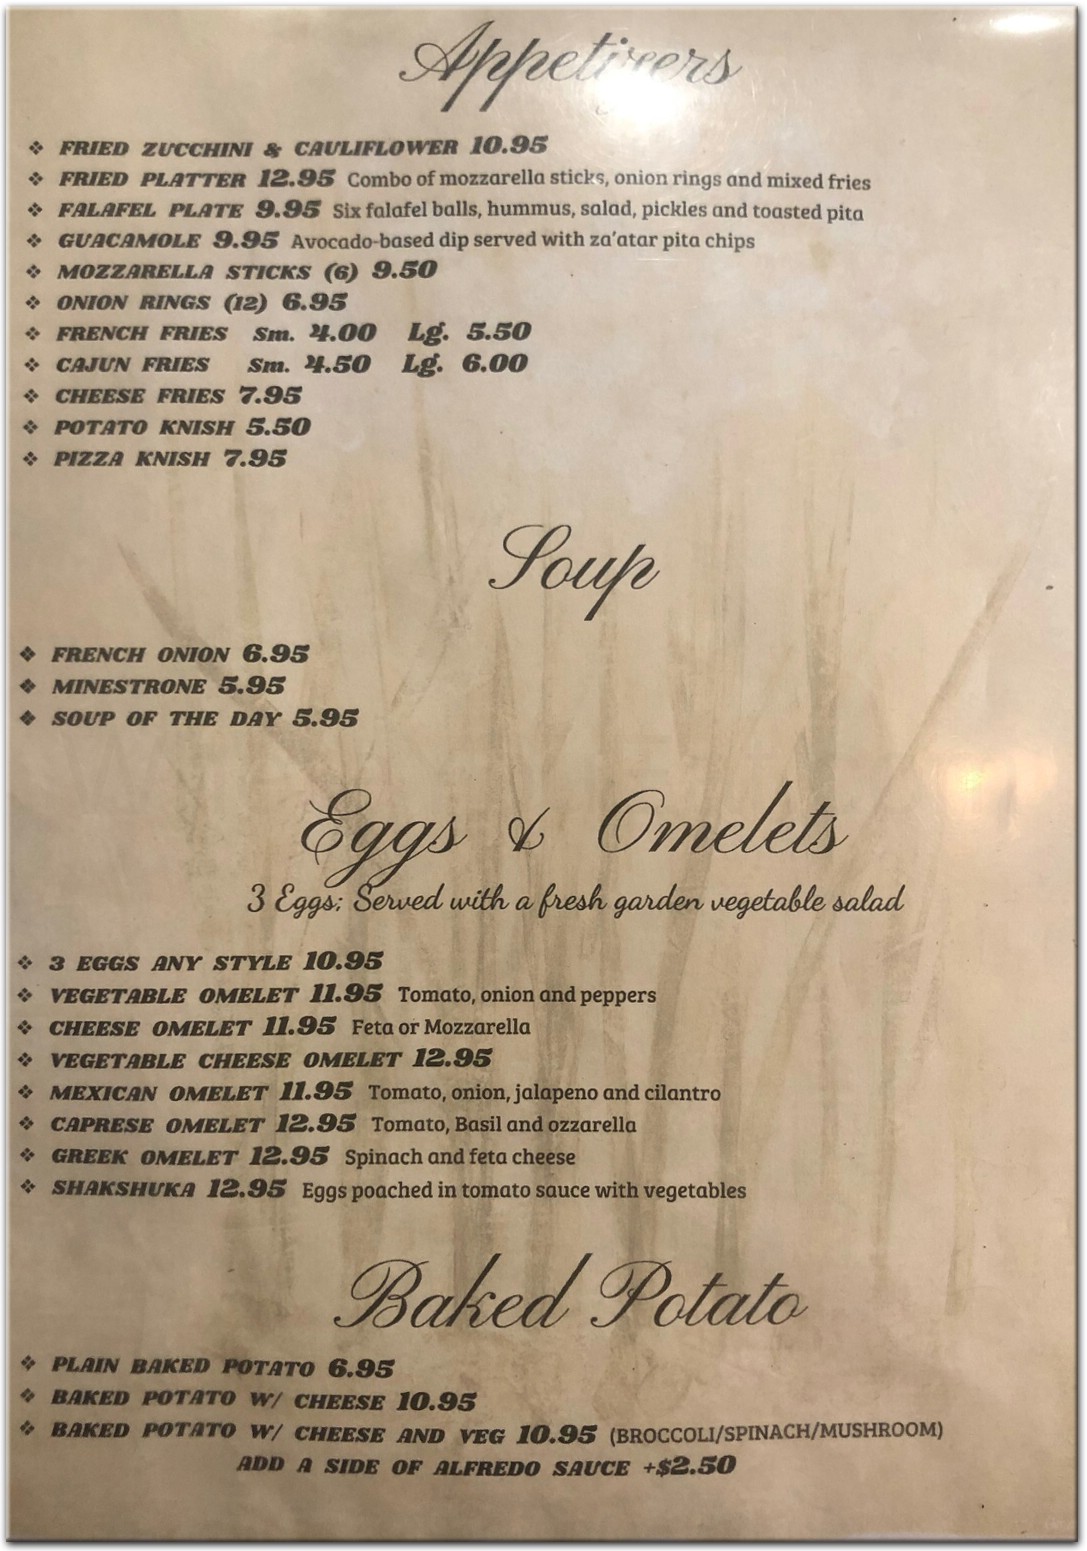 Appetizers
❖ FRIED ZUCCHINI & CAULIFLOWER 10.95
❖ FRIED PLATTER 12.95 Combo of mozzarella sticks, onion rings and mixed fries
❖ FALAFEL PLATE 9.95 Six falafel balls, hummus, salad, pickles and toasted pita
❖ GUACAMOLE 9.95 Avocado-based dip served with za'atar pita chips
❖ MOZZARELLA STICKS (6) 9.50
❖ ONION RINGS (12) 6.95
❖ FRENCH FRIES Sm. 4.00 Lg. 5.50
❖ CAJUN FRIES Sm. 4.50 Lg. 6.00
❖ CHEESE FRIES 7.95
❖ POTATO KNISH 5.50
❖ PIZZA KNISH 7.95
Soup
❖ FRENCH ONION 6.95
❖ MINESTRONE 5.95
❖ SOUP OF THE DAY 5.95
Eggs & Omelets
3 Eggs; Served with a fresh garden vegetable salad
❖ 3 EGGS ANY STYLE 10.95
❖ VEGETABLE OMELET 11.95 Tomato, onion and peppers
❖ CHEESE OMELET 11.95 Feta or Mozzarella
❖ VEGETABLE CHEESE OMELET 12.95
❖ MEXICAN OMELET 11.95 Tomato, onion, jalapeno and cilantro
❖ CAPRESE OMELET 12.95 Tomato, Basil and ozzarella
❖ GREEK OMELET 12.95 Spinach and feta cheese
❖ SHAKSHUKA 12.95 Eggs poached in tomato sauce with vegetables
Baked Potato
❖ PLAIN BAKED POTATO 6.95
❖ BAKED POTATO W/ CHEESE 10.95
❖ BAKED POTATO W/ CHEESE AND VEG 10.95 (BROCCOLI/SPINACH/MUSHROOM)
ADD A SIDE OF ALFREDO SAUCE +$2.50